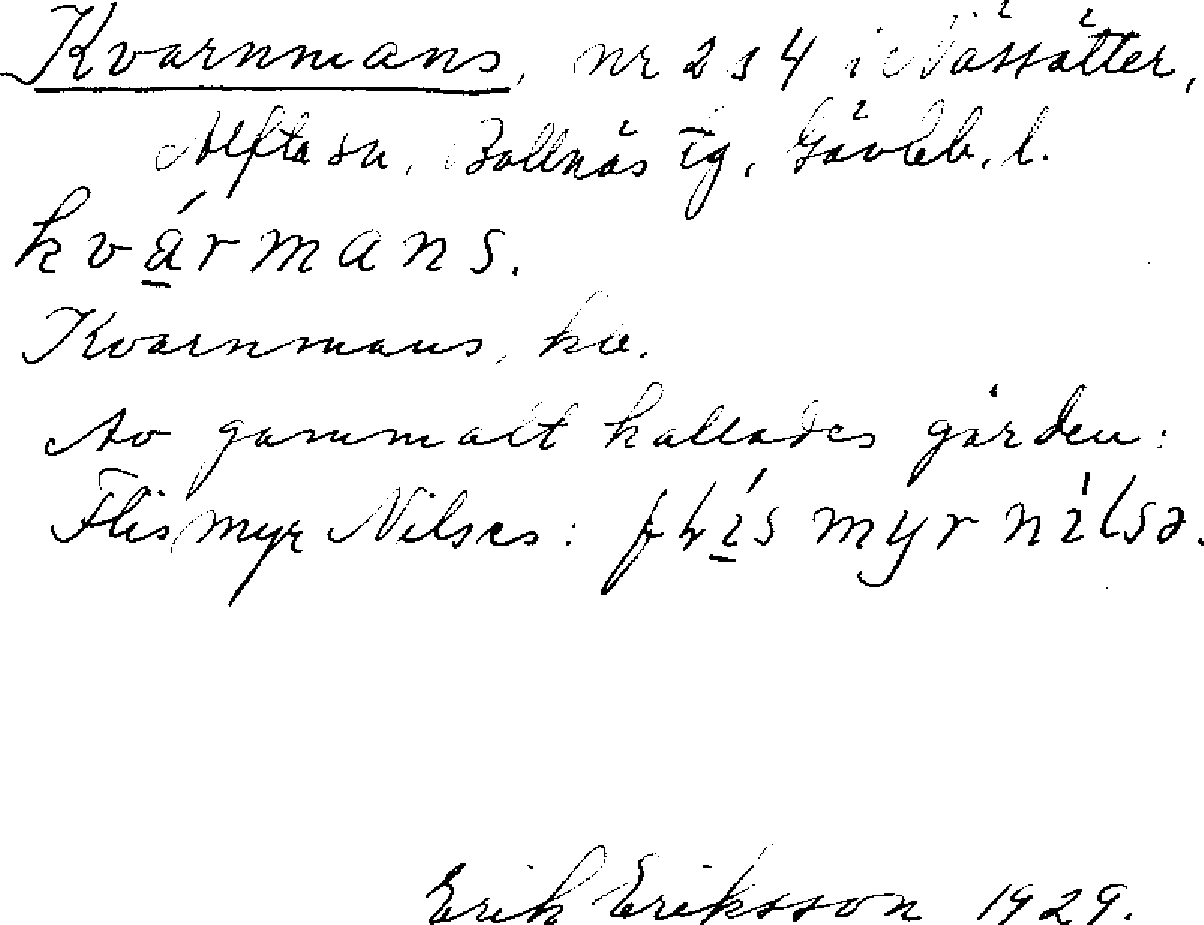 Kvarnmans, nr 2 s 4 i Nässätter,
Alfta sn, Bollnäs tg, Gävleb. l.
kvármans.
Kvarnmans, kb.
Av gammalt kallades gården:
Flismyr Nilses: myr
Erik Eriksson 1929.